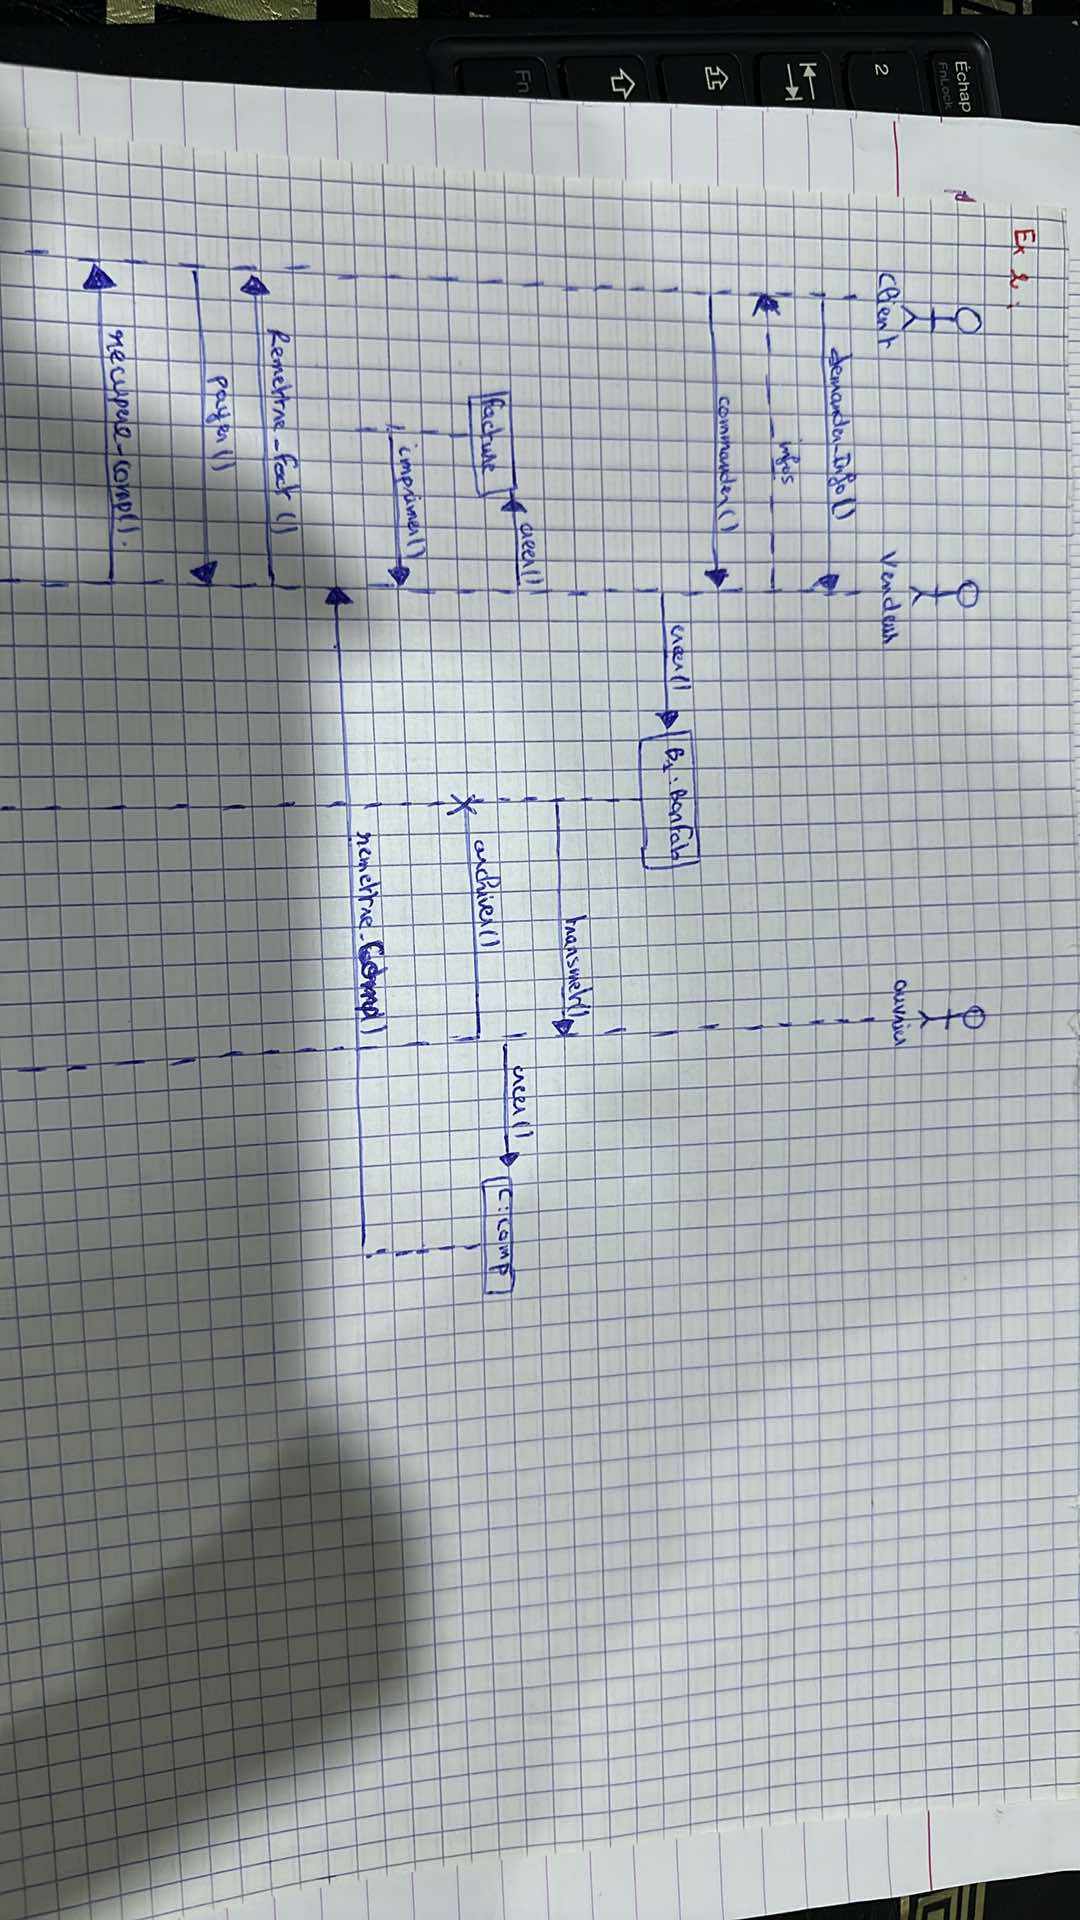 Ex 2 :
Client
Vendeur
ouvrier
demander_Info()
infos
commander()
creer()
B1 : BonFab
transmet()
creer()
facture
creer()
C : comp
archiver()
imprimer()
remettre_Comp()
Remettre_fact ()
payer()
récupere_comp().
Échap
FnLock
2
Fn